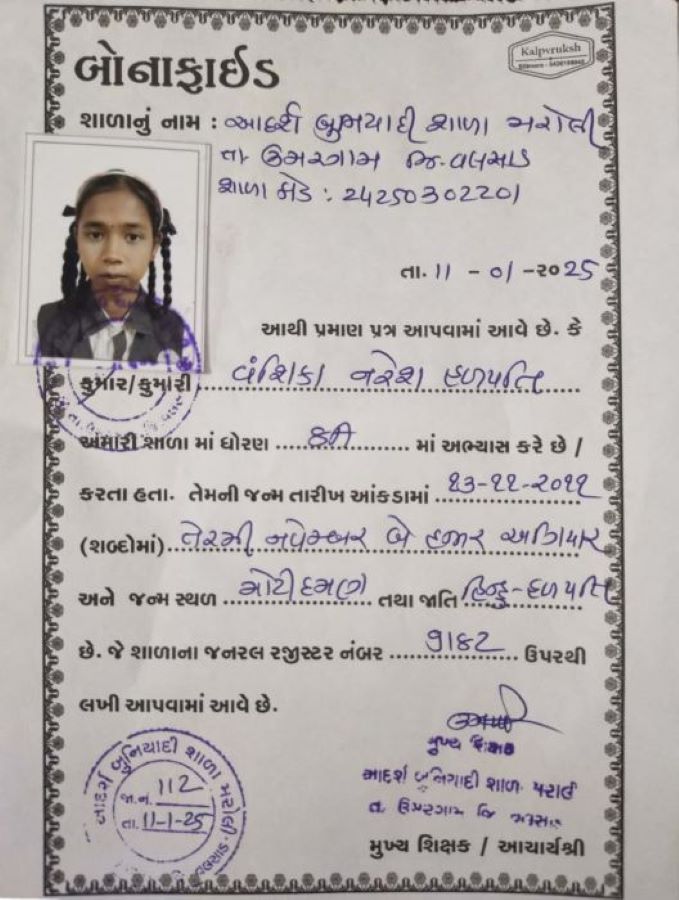 Kalpvruksh
બોનાફાઈડ
શાળાનું નામ : આદર્શ બુનયાદી શાળા મરોલી
તા. ઉમરગામ જિ. વલસાડ
શાળા કોડ : 24250302201
તા. 11 - 01 - ૨૦25
આથી પ્રમાણ પત્ર આપવામાં આવે છે. કે
કુમાર/કુમારી વંશિકા નરેશ હળપતિ
અમારી શાળા માં ધોરણ ........ માં અભ્યાસ કરે છે /
કરતા હતા. તેમની જન્મ તારીખ આંકડામાં ૧૩-૧૧-૨૦૧૧
(શબ્દોમાં) તેરમી નવેમ્બર બે હજાર અગિયાર
અને જન્મ સ્થળ મોટી દમણ તથા જાતિ હિન્દુ - હળપતિ
છે. જે શાળાના જનરલ રજીસ્ટર નંબર 9182 ઉપરથી
લખી આપવામાં આવે છે.
મુખ્ય શિક્ષક
આદર્શ બુનિયાદી શાળા
તા. ઉમરગામ જિ.
મુખ્ય શિક્ષક / આચાર્યશ્રી
આદર્શ બુનિયાદી શાળા મરોલી
વલસાડ
જા.નં. 112
તા. 11-1-25